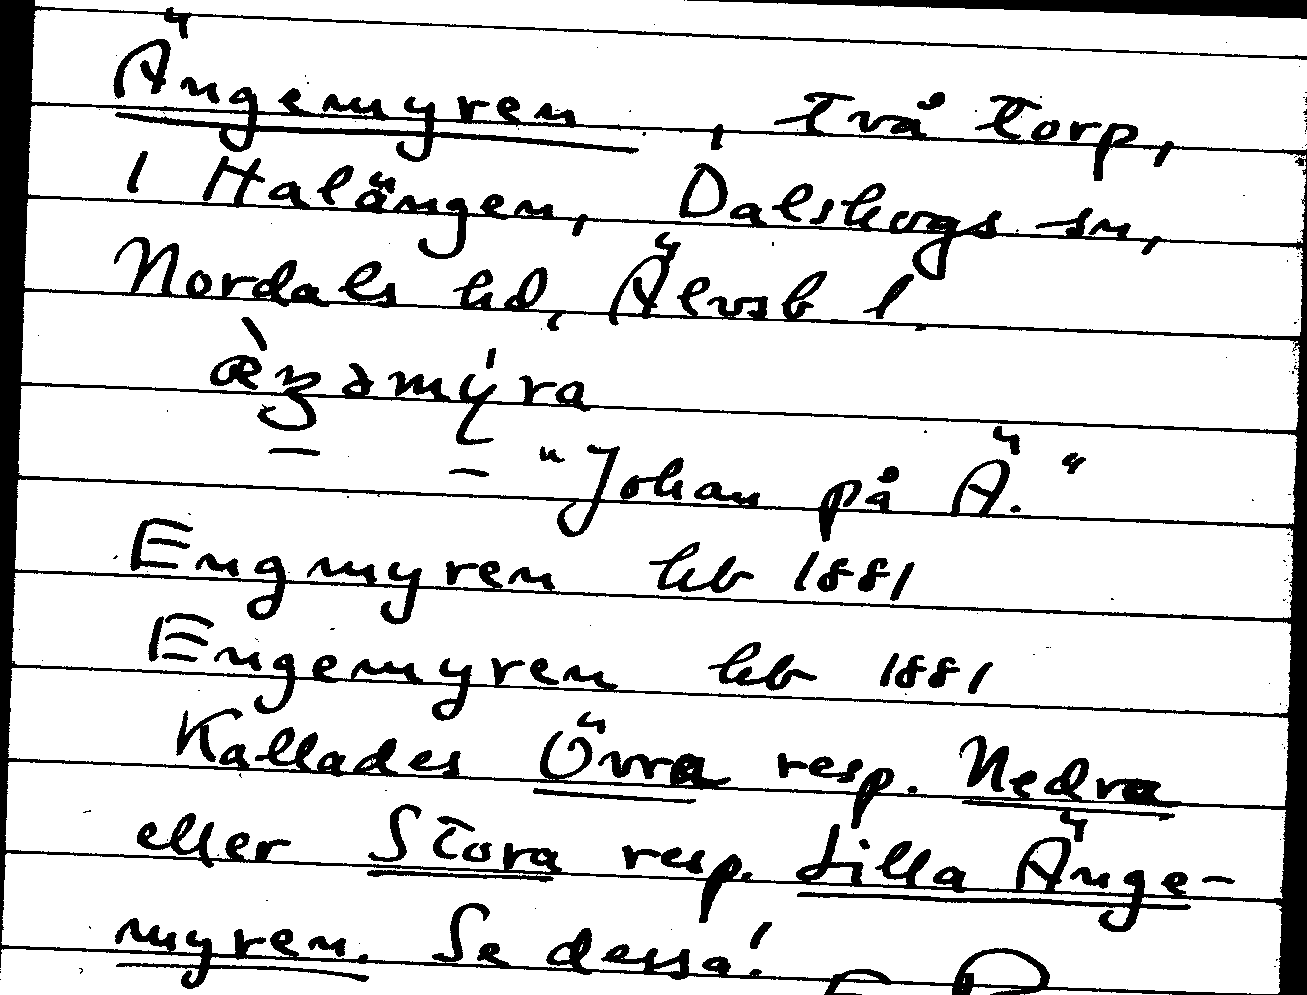 Ängemyren, två torp,
i Halängen, Dalskogs sn,
Nordals hd, Älvsb l.
"Johan på Ä."
Engmyren hb 1881
Engemyren hb 1881
Kallades Övra resp. Nedra
eller Stora resp. Lilla Änge-
myren. Se dessa!